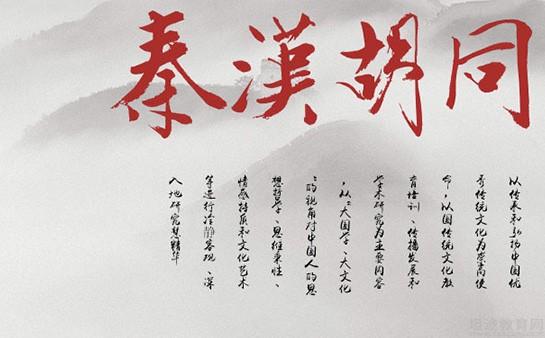 秦漢胡同
以传承和弘扬中国优
秀传统文化为崇高使
命，以国传统文化教
育培训、传播发展和
学术研究为主要内容
，从“大国学、大文化
”的视角对中国人的思
想哲学、思维秉性、
情感特质和文化艺术
等进行冷静客观、深
入地研究慧精华
教育网